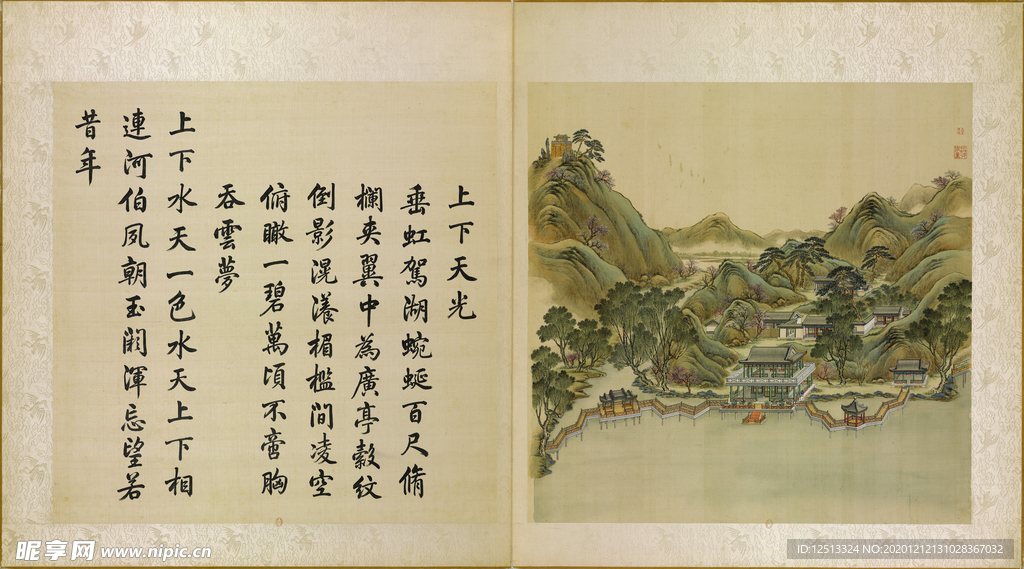 上下天光
垂虹駕湖蜿蜒百尺脩
欄夾翼中為廣亭縠紋
倒影滉瀁楣檻間凌空
俯瞰一碧萬頃不啻胸
吞雲夢
上下水天一色水天上下相
連河伯夙朝玉闕渾忘望若
昔年
昵享网 www.nipic.cn
ID:12513324 NO:20201212131028367032